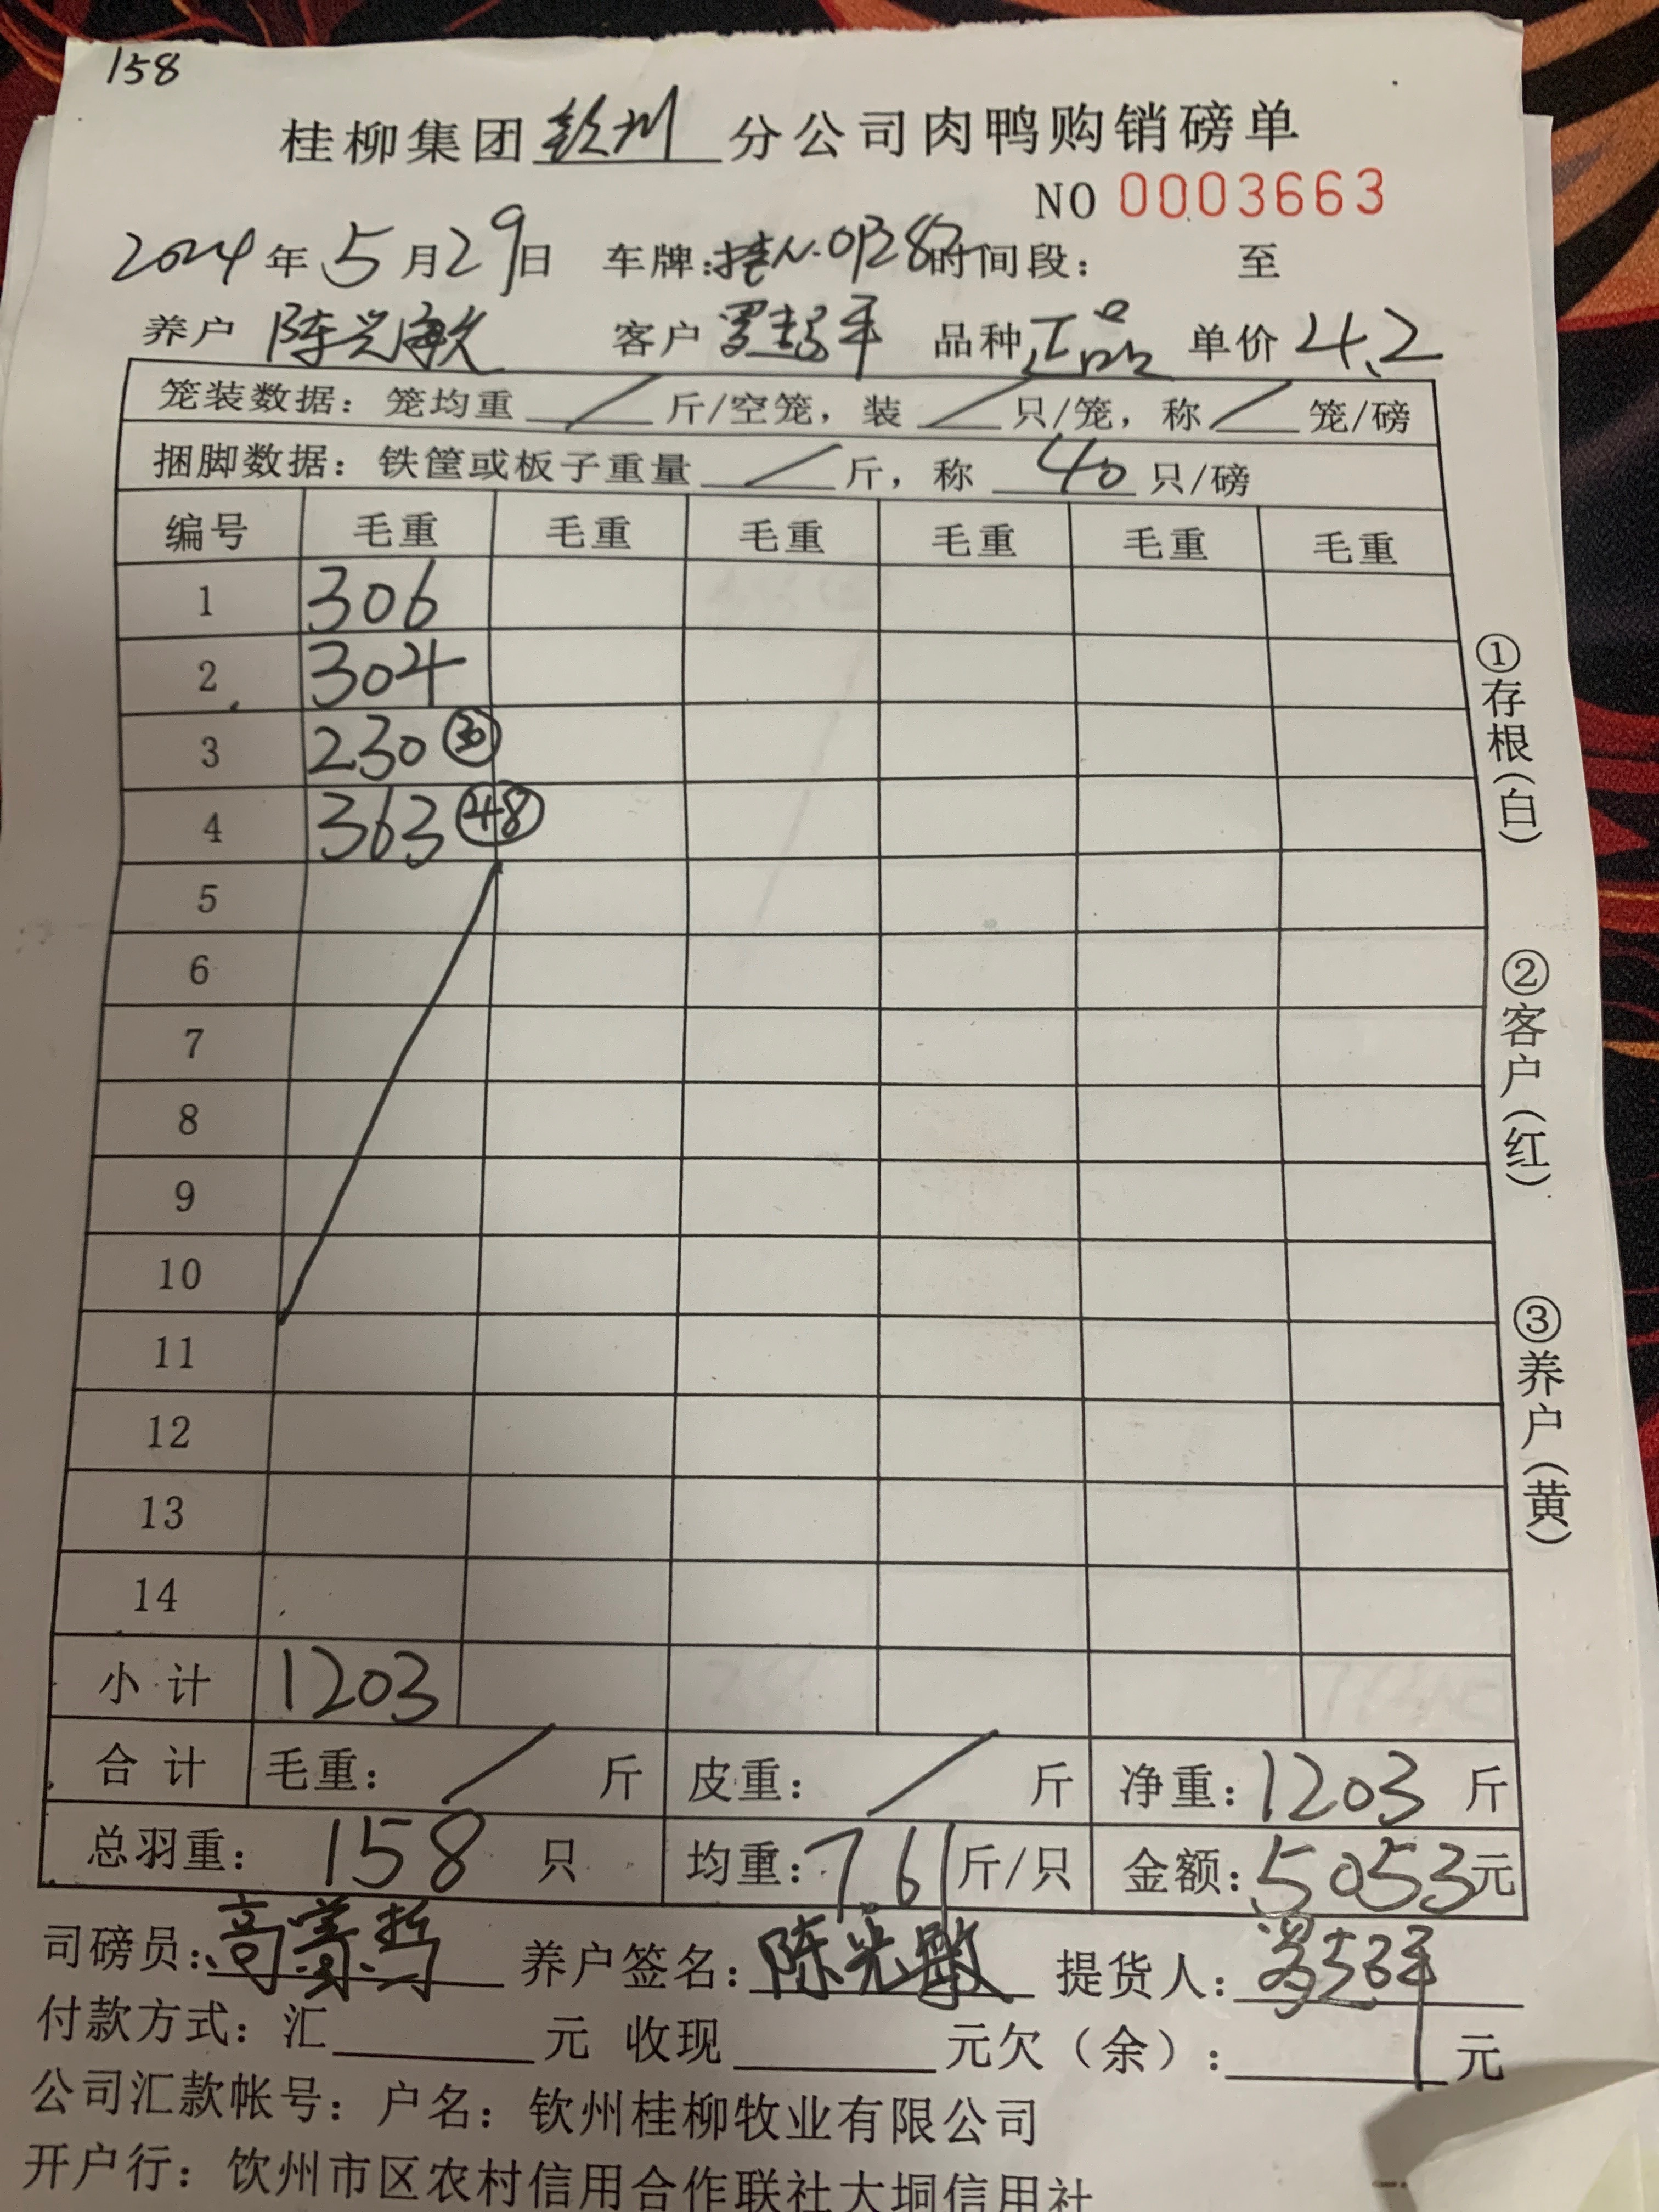 158
桂柳集团钦州分公司肉鸭购销磅单
NO 0003663
2024年5月29日 车牌:桂N. 时间段: 至
养户 陈兴敏 客户 罗 平 品种 正品 单价 4.2
笼装数据:笼均重 / 斤/空笼,装 / 只/笼,称 / 笼/磅
捆脚数据:铁筐或板子重量 / 斤,称 40 只/磅
编号 毛重 毛重 毛重 毛重 毛重 毛重
1 306
2 304
3 230 ㉚
4 363 ㊽
5
6
7
8
9
10
11
12
13
14
小计 1203
合计 毛重: / 斤 皮重: / 斤 净重:1203 斤
总羽重: 158 只 均重:7.61 斤/只 金额:5053元
司磅员:高 哲 养户签名:陈光敏 提货人:
付款方式:汇 元 收现 元欠(余): 元
公司汇款帐号:户名:钦州桂柳牧业有限公司
开户行:钦州市区农村信用合作联社大垌信用社
①存根(白) ②客户(红) ③养户(黄)